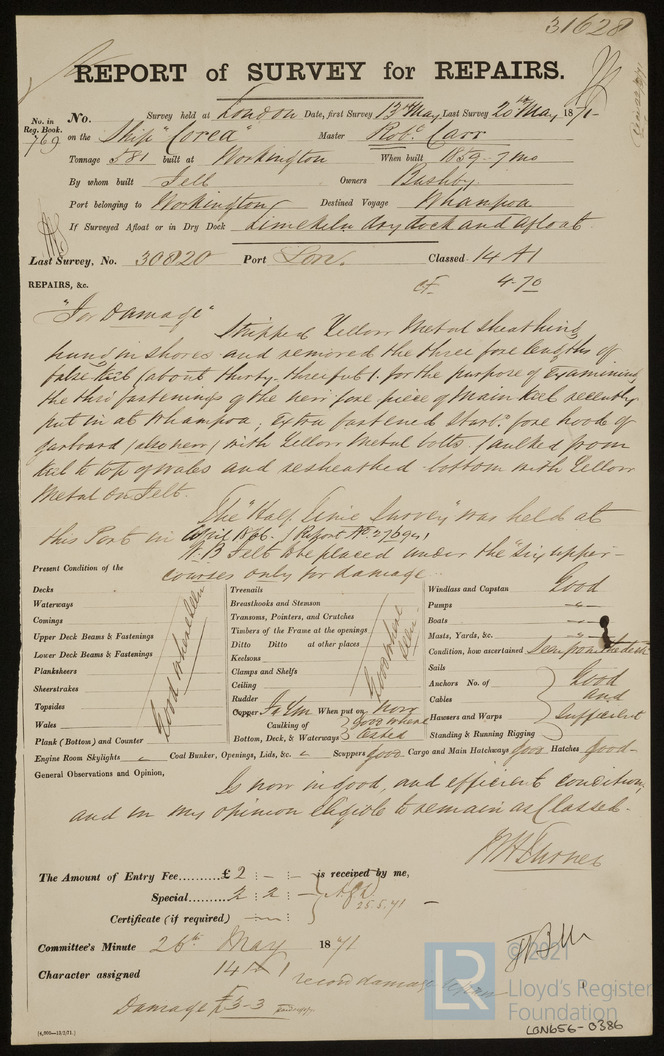 31628
REPORT of SURVEY for REPAIRS.
No. in Reg. Book. 769
No. Survey held at London Date, first Survey 13th May, Last Survey 20th May, 1871-
on the Ship "Corea" Master Robt Carr
Tonnage 581 built at Workington When built 1859-7 mo
By whom built Fell Owners Bushby
Port belonging to Workington Destined Voyage Whampoa
If Surveyed Afloat or in Dry Dock Limekiln dry dock and afloat.
Last Survey, No. 30820 Port Lon. Classed 14 A1
REPAIRS, &c. CF 4-70
"For Damage"
Stripped Yellow Metal Sheathing
hung in shores and removed the three fore lengths of
false keel (about thirty-three feet). for the purpose of Examining
the thro fastenings of the new fore piece of Main Keel recently
put in at Whampoa; Extra fastened Starbd fore hood of
garboard (also new) with Yellow Metal bolts. Caulked from
Keel to top of wales and resheathed bottom with Yellow
Metal on Felt.
The "Half Time Survey" was held at
this Port in April 1866. (Report No 27694)
N.B Felt to be placed under the "Six upper-
courses only for damage
Present Condition of the
Decks
Waterways
Comings
Upper Deck Beams & Fastenings
Lower Deck Beams & Fastenings
Planksheers
Sheerstrakes
Topsides
Wales
Plank (Bottom) and Counter
Good where seen
Treenails
Breasthooks and Stemson
Transoms, Pointers, and Crutches
Timbers of the Frame at the openings
Ditto Ditto at other places
Keelsons
Clamps and Shelfs
Ceiling
Rudder
Good where seen
Copper Fa Ym When put on now
Caulking of Bottom, Deck, & Waterways } Good where tested
Windlass and Capstan Good
Pumps -"-
Boats -"-
Masts, Yards, &c. -"-
Condition, how ascertained Seen from the deck
Sails
Anchors No. of
Cables
Hawsers and Warps
Standing & Running Rigging
Good and Sufficient
Engine Room Skylights Coal Bunker, Openings, Lids, &c. Scuppers good Cargo and Main Hatchways good Hatches good-
General Observations and Opinion,
Is now in good, and efficient condition,
and in my opinion Eligible to remain as Classed.
The Amount of Entry Fee.........£ 2 : - : is received by me,
Special......... 2 2 -
25.5.71
Certificate (if required)
Committee's Minute 26th May 1871
Character assigned 14 A 1
record damage repairs
Damage £3-3
[4,000-12/2/71.]
© 2021
LR
Lloyd's Register
Foundation
LON656-0386